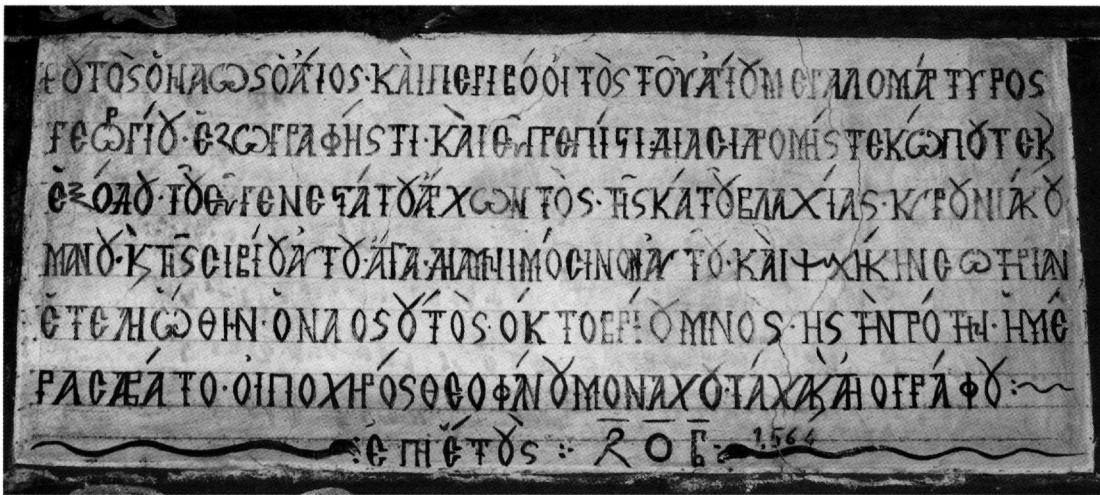 ΟΥΤΟΣ Ὁ ΝΑΩΣ Ὁ ἍΓΙΟΣ· ΚΑῚ ΠΕΡΙΒΌΟΙΤῸΣ ΤΟΥ͂ ἉΓΊΟΥ ΜΕΓΑΛΟΜΆΡΤΥΡΟΣ
ΓΕΩΡΓΊΟΥ· ἘΖΩΓΡΑΦΉΣΤΙ· ΚΑῚ ΕΥΠΡΕΠΊΣΤΙ· ΔΙΑ ΣΙΔΡΟΜΊΣ ΤΕ Κ ΚΩΠΟΥ ΤΕ Κ
ἘΞΌΔΟΥ· ΤΟΥ ΕΥΓΕΝΕΣΤΆΤΟΥ ἌΡΧΩΝΤΟΣ· ΤΗΣ ΚΆΤΟΥ ΒΛΑΧΊΑΣ· Κ
ΜΑΝΟΥ· Κ ΤΗΣ ΣΙΒΊΟΥ ΑΥΤΟΥ· ἍΓΑ· ΔΙΑ ΜΝΙΜΌΣΙΝΟΝ ΑΥΤΟ· ΚΑῚ ΨΥΧΙΚΙΝ ΣΩΤΗΡΙΑΝ
ἘΤΕΛΗΏΘΗΝ· Ὁ ΝΑΟΣ ΟΥΤΟΣ· ὈΚΤΟΕΒΡΊΟΥ ΜΝΟΣ· ΗΣ ΤῊΝ ΠΡΌΤΗΝ· ἩΜΈ
ΡΑ ΣΑΒΆΤΟ· ΟΙΠΟ ΧΗΡΌΣ ΘΕΟΦΆΝΟΥ ΜΟΝΑΧΟΥ· ΤΆΧΑ Κ ΖΗΟΓΡΆΦΟΥ:~
ἘΠΗ ἜΤΟΥΣ :· ΖΟΓ 1564